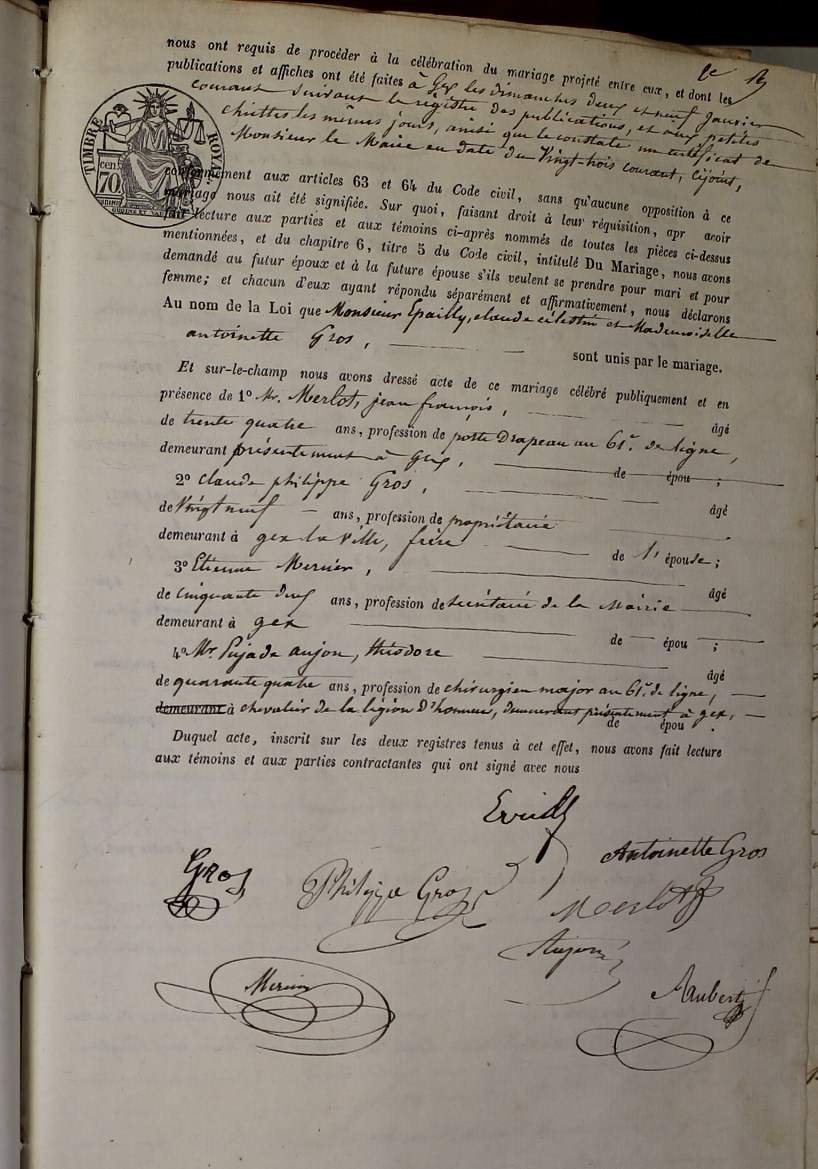 nous ont requis de procéder à la célébration du mariage projeté entre eux, et dont les
publications et affiches ont été faites à Gex les dimanches deux et neuf Janvier
courant suivant le registre des publications, et aux petites
chiettes les mêmes jours, ainsi que le constate un certificat de
Monsieur le Maire en date du Vingt-trois courant, cijoint,
TIMBRE ROYAL
70 cen.
conformément aux articles 63 et 64 du Code civil, sans qu'aucune opposition à ce
mariage nous ait été signifiée. Sur quoi, faisant droit à leur réquisition, apr avoir
fait lecture aux parties et aux témoins ci-après nommés de toutes les pièces ci-dessus
mentionnées, et du chapitre 6, titre 5 du Code civil, intitulé Du Mariage, nous avons
demandé au futur époux et à la future épouse s'ils veulent se prendre pour mari et pour
femme; et chacun d'eux ayant répondu séparément et affirmativement, nous déclarons
Au nom de la Loi que Monsieur Epailly, claude célestin et Mademoiselle
antoinette Gros, sont unis par le mariage.
Et sur-le-champ nous avons dressé acte de ce mariage célébré publiquement et en
présence de 1º Mr. Merlot, jean françois, âgé
de trente quatre ans, profession de porte Drapeau au 61e. de ligne,
demeurant présentement à Gex, de épou ;
2º claude philippe Gros, âgé
de Vingt neuf ans, profession de propriétaire
demeurant à gex la ville, frère de l'épouse;
3º Etienne Mernier, âgé
de cinquante deux ans, profession de secrétaire de la Mairie
demeurant à gex de épou ;
4º Mr. Pujade anjou, théodore âgé
de quarante quatre ans, profession de chirurgien major au 61e. de ligne,
demeurant à chevalier de la légion D'honneur, demeurant présentement à gex,
de épou .
Duquel acte, inscrit sur les deux registres tenus à cet effet, nous avons fait lecture
aux témoins et aux parties contractantes qui ont signé avec nous
Antoinette Gros
Gros
Philippe Gros
Merlot
Anjou
Mernier